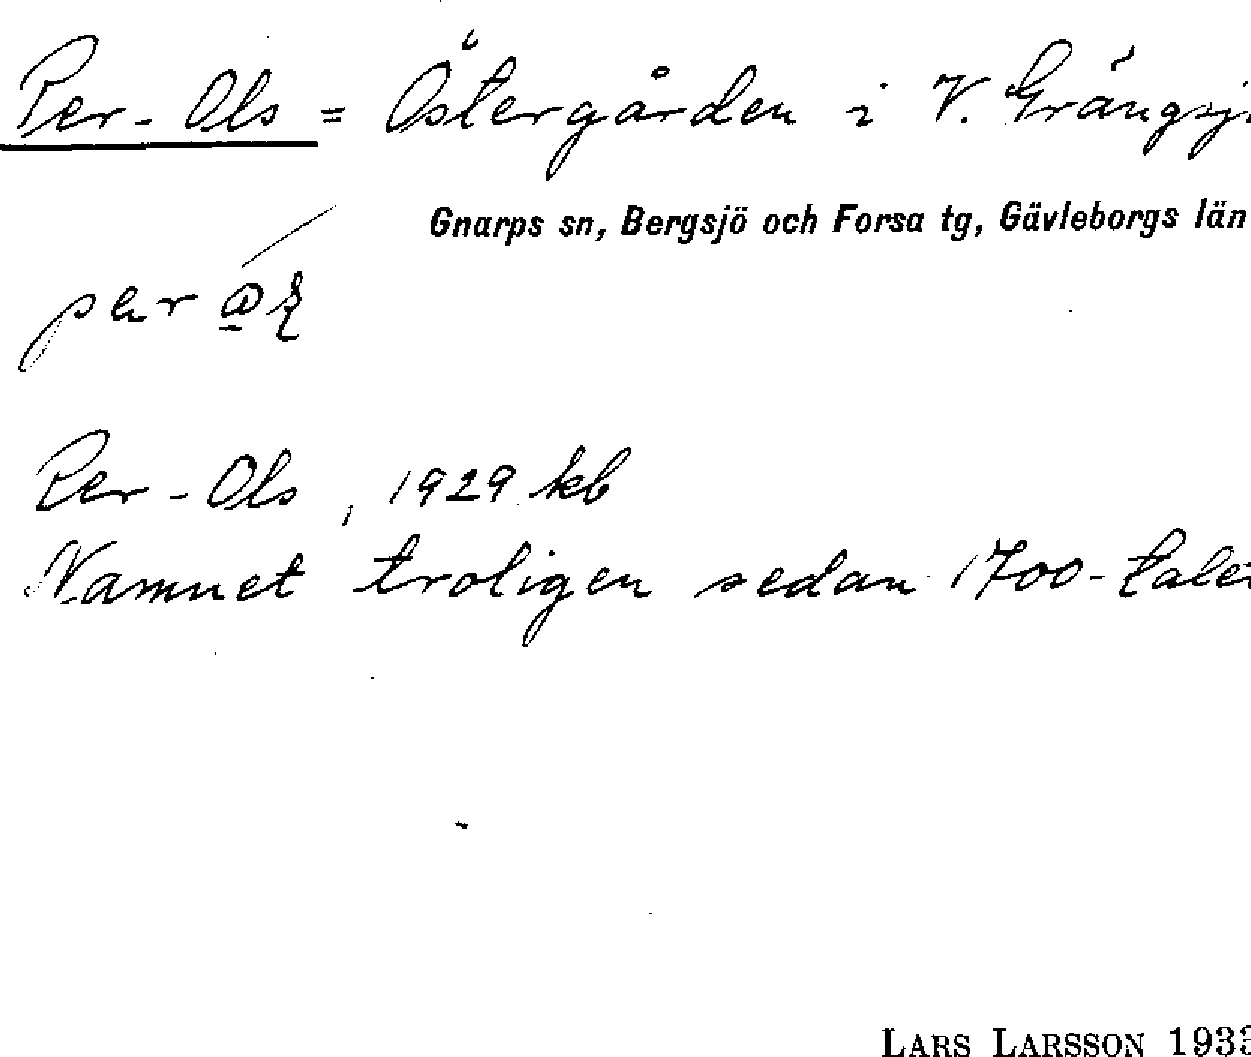 Per-Ols = Östergården i V. Grängsj
Gnarps sn, Bergsjö och Forsa tg, Gävleborgs län
per
Per-Ols, 1929 kb
Namnet troligen sedan 1700-talet
LARS LARSSON 1933